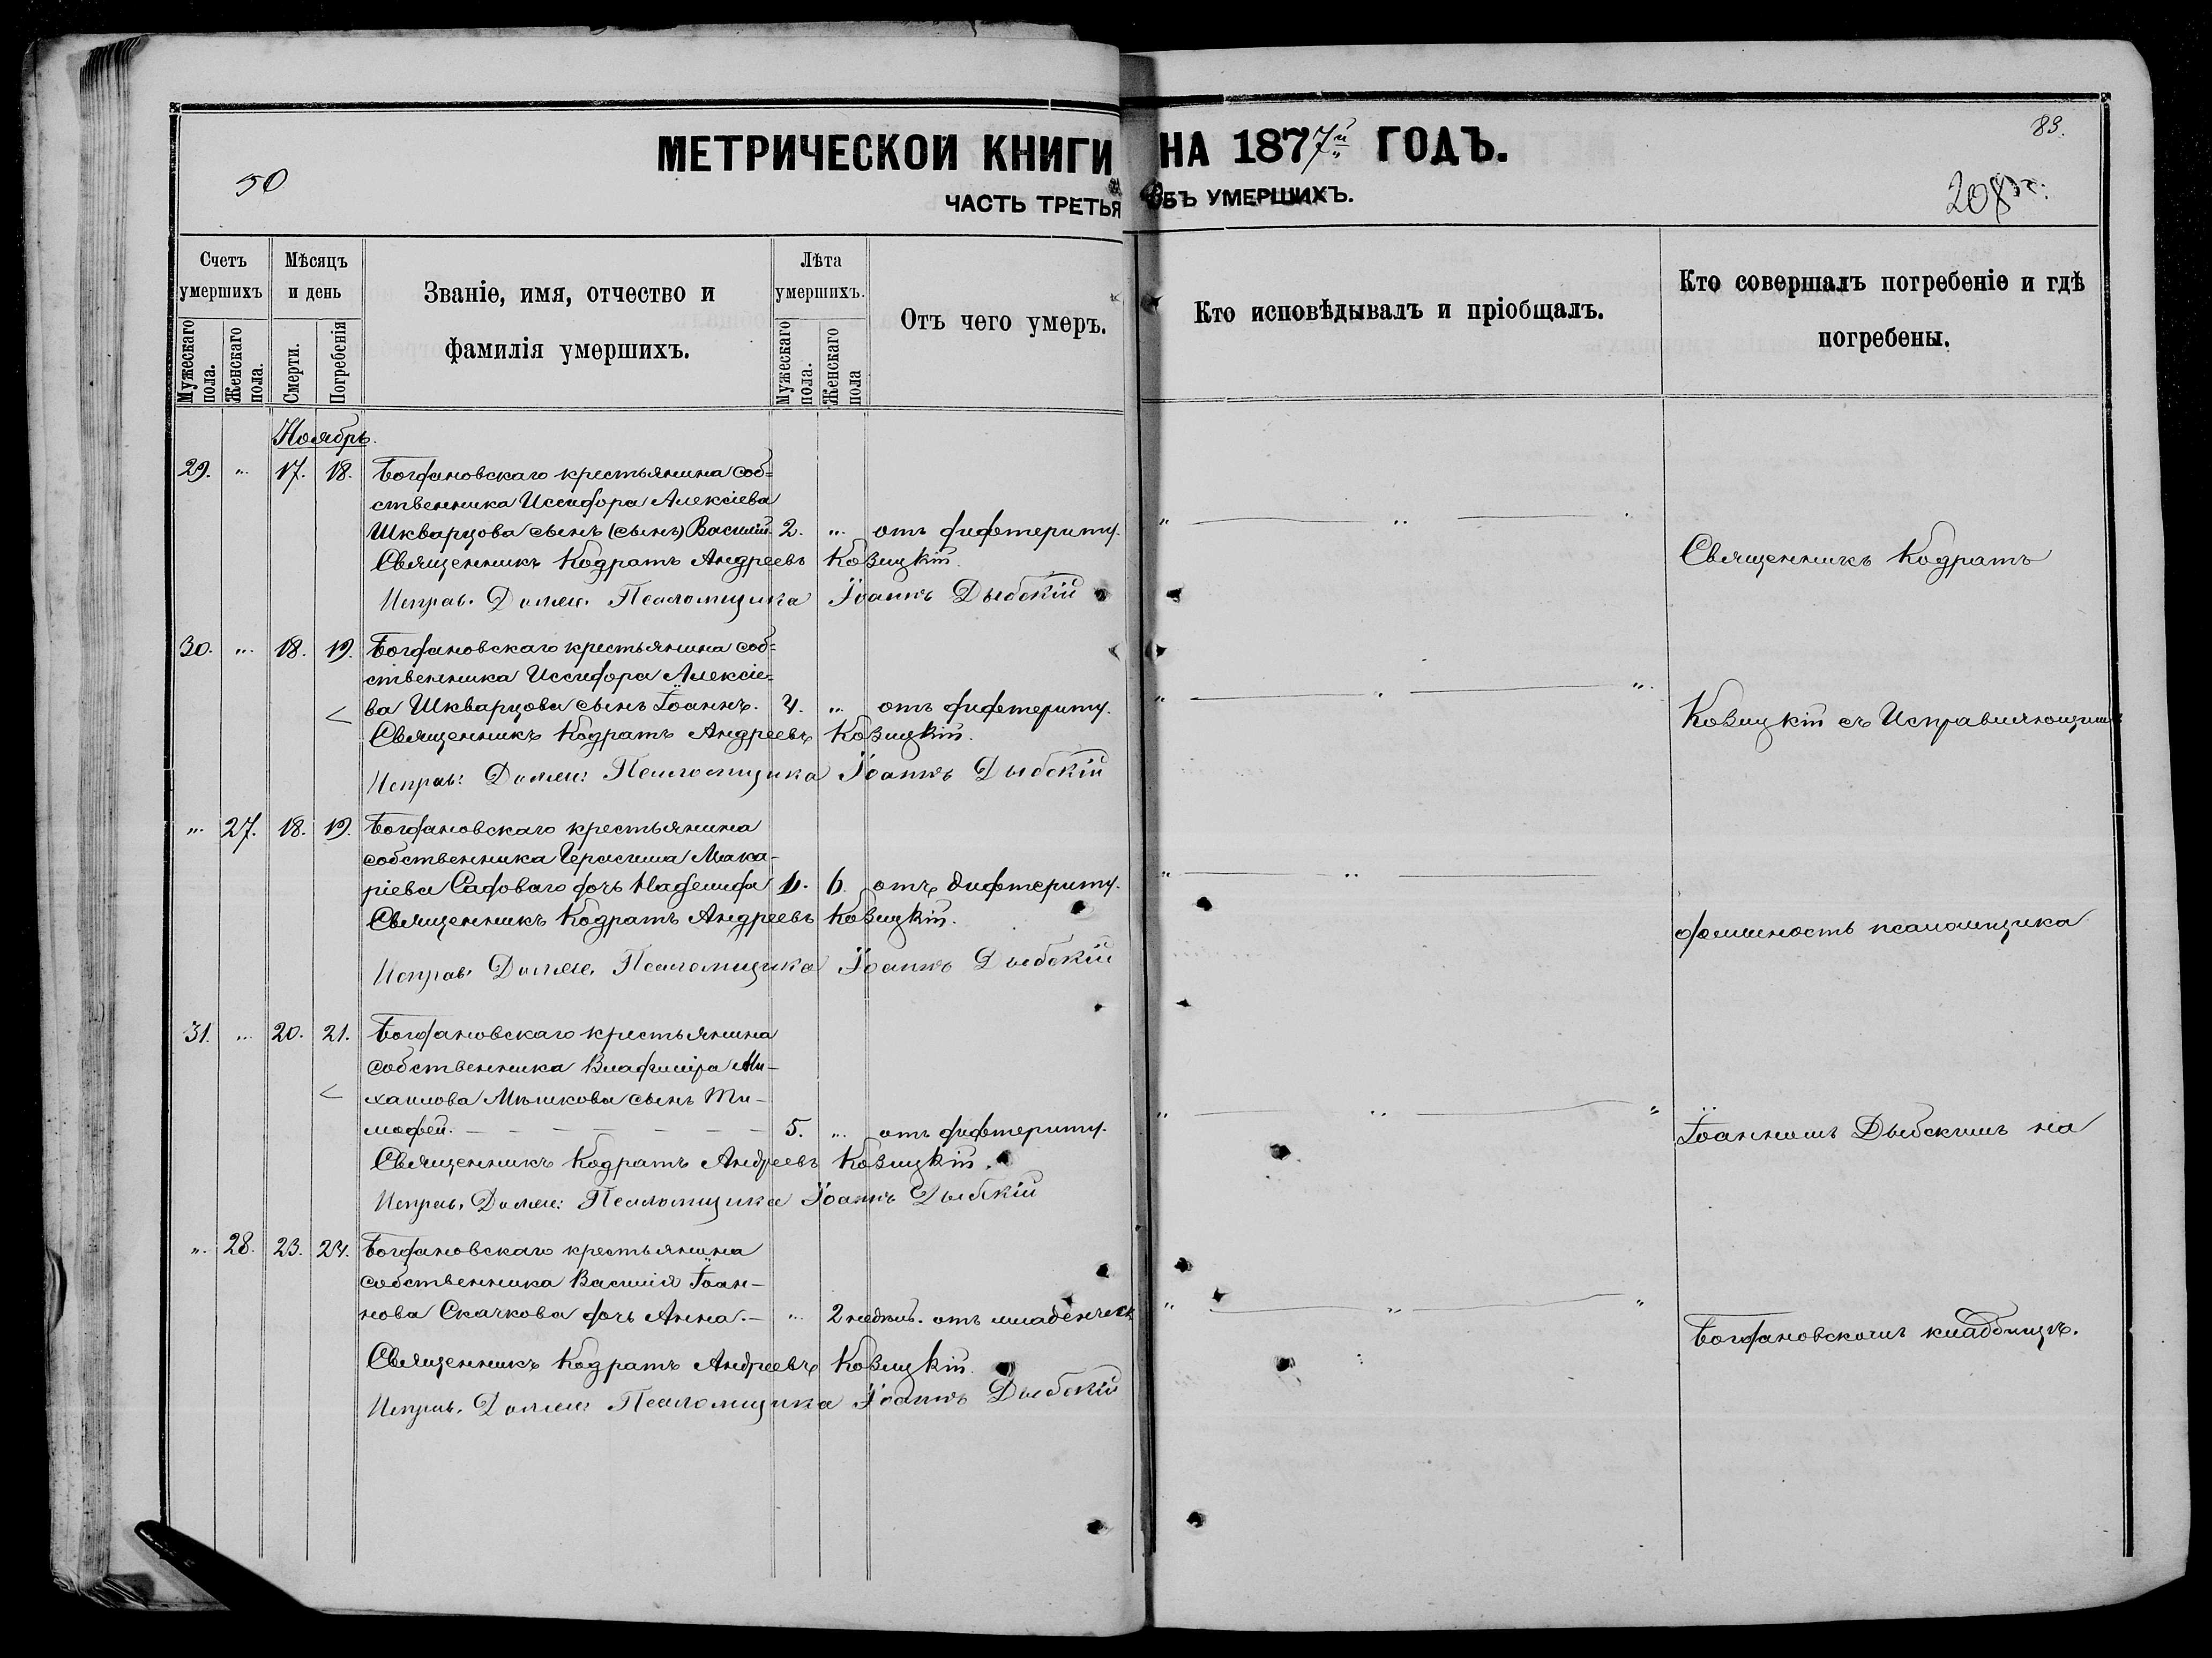 МЕТРИЧЕСКОЙ КНИГИ НА 1877й ГОДЪ.
83.
50
ЧАСТЬ ТРЕТЬЯ ОБЪ УМЕРШИХЪ.
208
Счетъ умершихъ
Мѣсяцъ и день
Званіе, имя, отчество и фамилія умершихъ.
Лѣта умершихъ.
Отъ чего умеръ.
Кто исповѣдывалъ и пріобщалъ.
Кто совершалъ погребеніе и гдѣ погребены.
Мужескаго пола.
Женскаго пола.
Смерти.
Погребенія
Мужескаго пола.
Женскаго пола
Ноябрь.
29. „ 17. 18. Богдановскаго крестьянина соб=
ственника Иссидора Алексіева
Шкварцова сынъ (сынъ) Василій. 2. „ отъ дифтериту. „ „
Священникъ Кодратъ Андреевъ Козицкій.
Священникъ Кодратъ
Исправ. Должн. Псаломщика Іоаннъ Дыбскій
30. „ 18. 19. Богдановскаго крестьянина соб=
ственника Иссидора Алексіе=
ва Шкварцова сынъ Іоаннъ. 4. „ отъ дифтериту. „ „ „
Священникъ Кодратъ Андреевъ Козицкій.
Козицкій съ Исправляющимъ
Исправ: Должн: Псаломщика Іоаннъ Дыбскій
„ 27. 18. 19. Богдановскаго крестьянина
собственника Герасима Мака-
ріева Садоваго дочь Надежда 6. отъ дифтериту. „ „
Священникъ Кодратъ Андреевъ Козицкій.
должность псаломщика
Исправ. Должн. Псаломщика Іоаннъ Дыбскій
31. „ 20. 21. Богдановскаго крестьянина
собственника Владиміра Ми-
хаилова Мѣшкова сынъ Ти-
мофей. 5. „ отъ дифтериту. „ „ „
Іоанномъ Дыбскимъ на
Священникъ Кодратъ Андреевъ Козицкій.
Исправ. Должн: Псаломщика Іоаннъ Дыбскій
„ 28. 23. 24. Богдановскаго крестьянина
собственника Василія Іоан-
нова Скачкова дочь Анна. „ 2 недѣль. отъ младенческ „ „ „
Богдановскомъ кладбищѣ.
Священникъ Кодратъ Андреевъ Козицкій.
Исправ. Должн: Псаломщика Іоаннъ Дыбскій